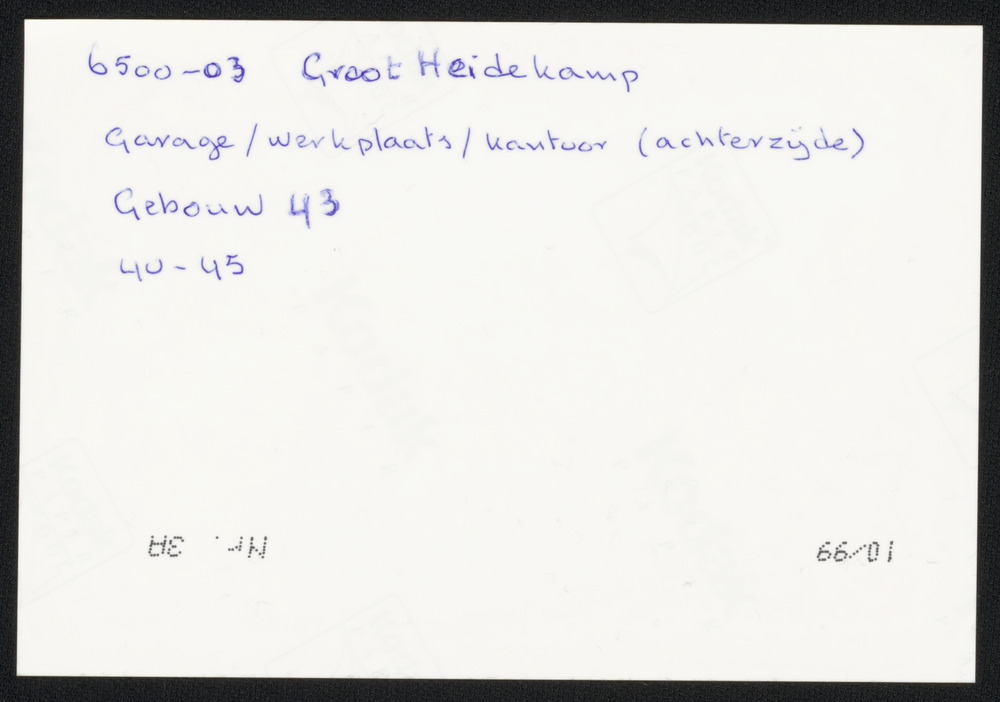 6500-03 Groot Heidekamp
Garage / werkplaats / kantoor (achterzijde)
Gebouw 43
40-45
Nr. 3A
10/99